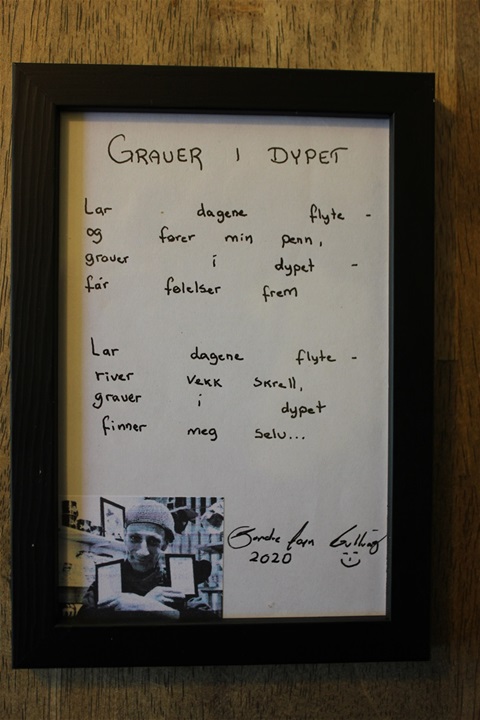 GRAVER I DYPET
Lar dagene flyte -
og fører min penn,
graver i dypet -
får følelser frem
Lar dagene flyte -
river vekk skrell,
graver i dypet
finner meg selv...
2020